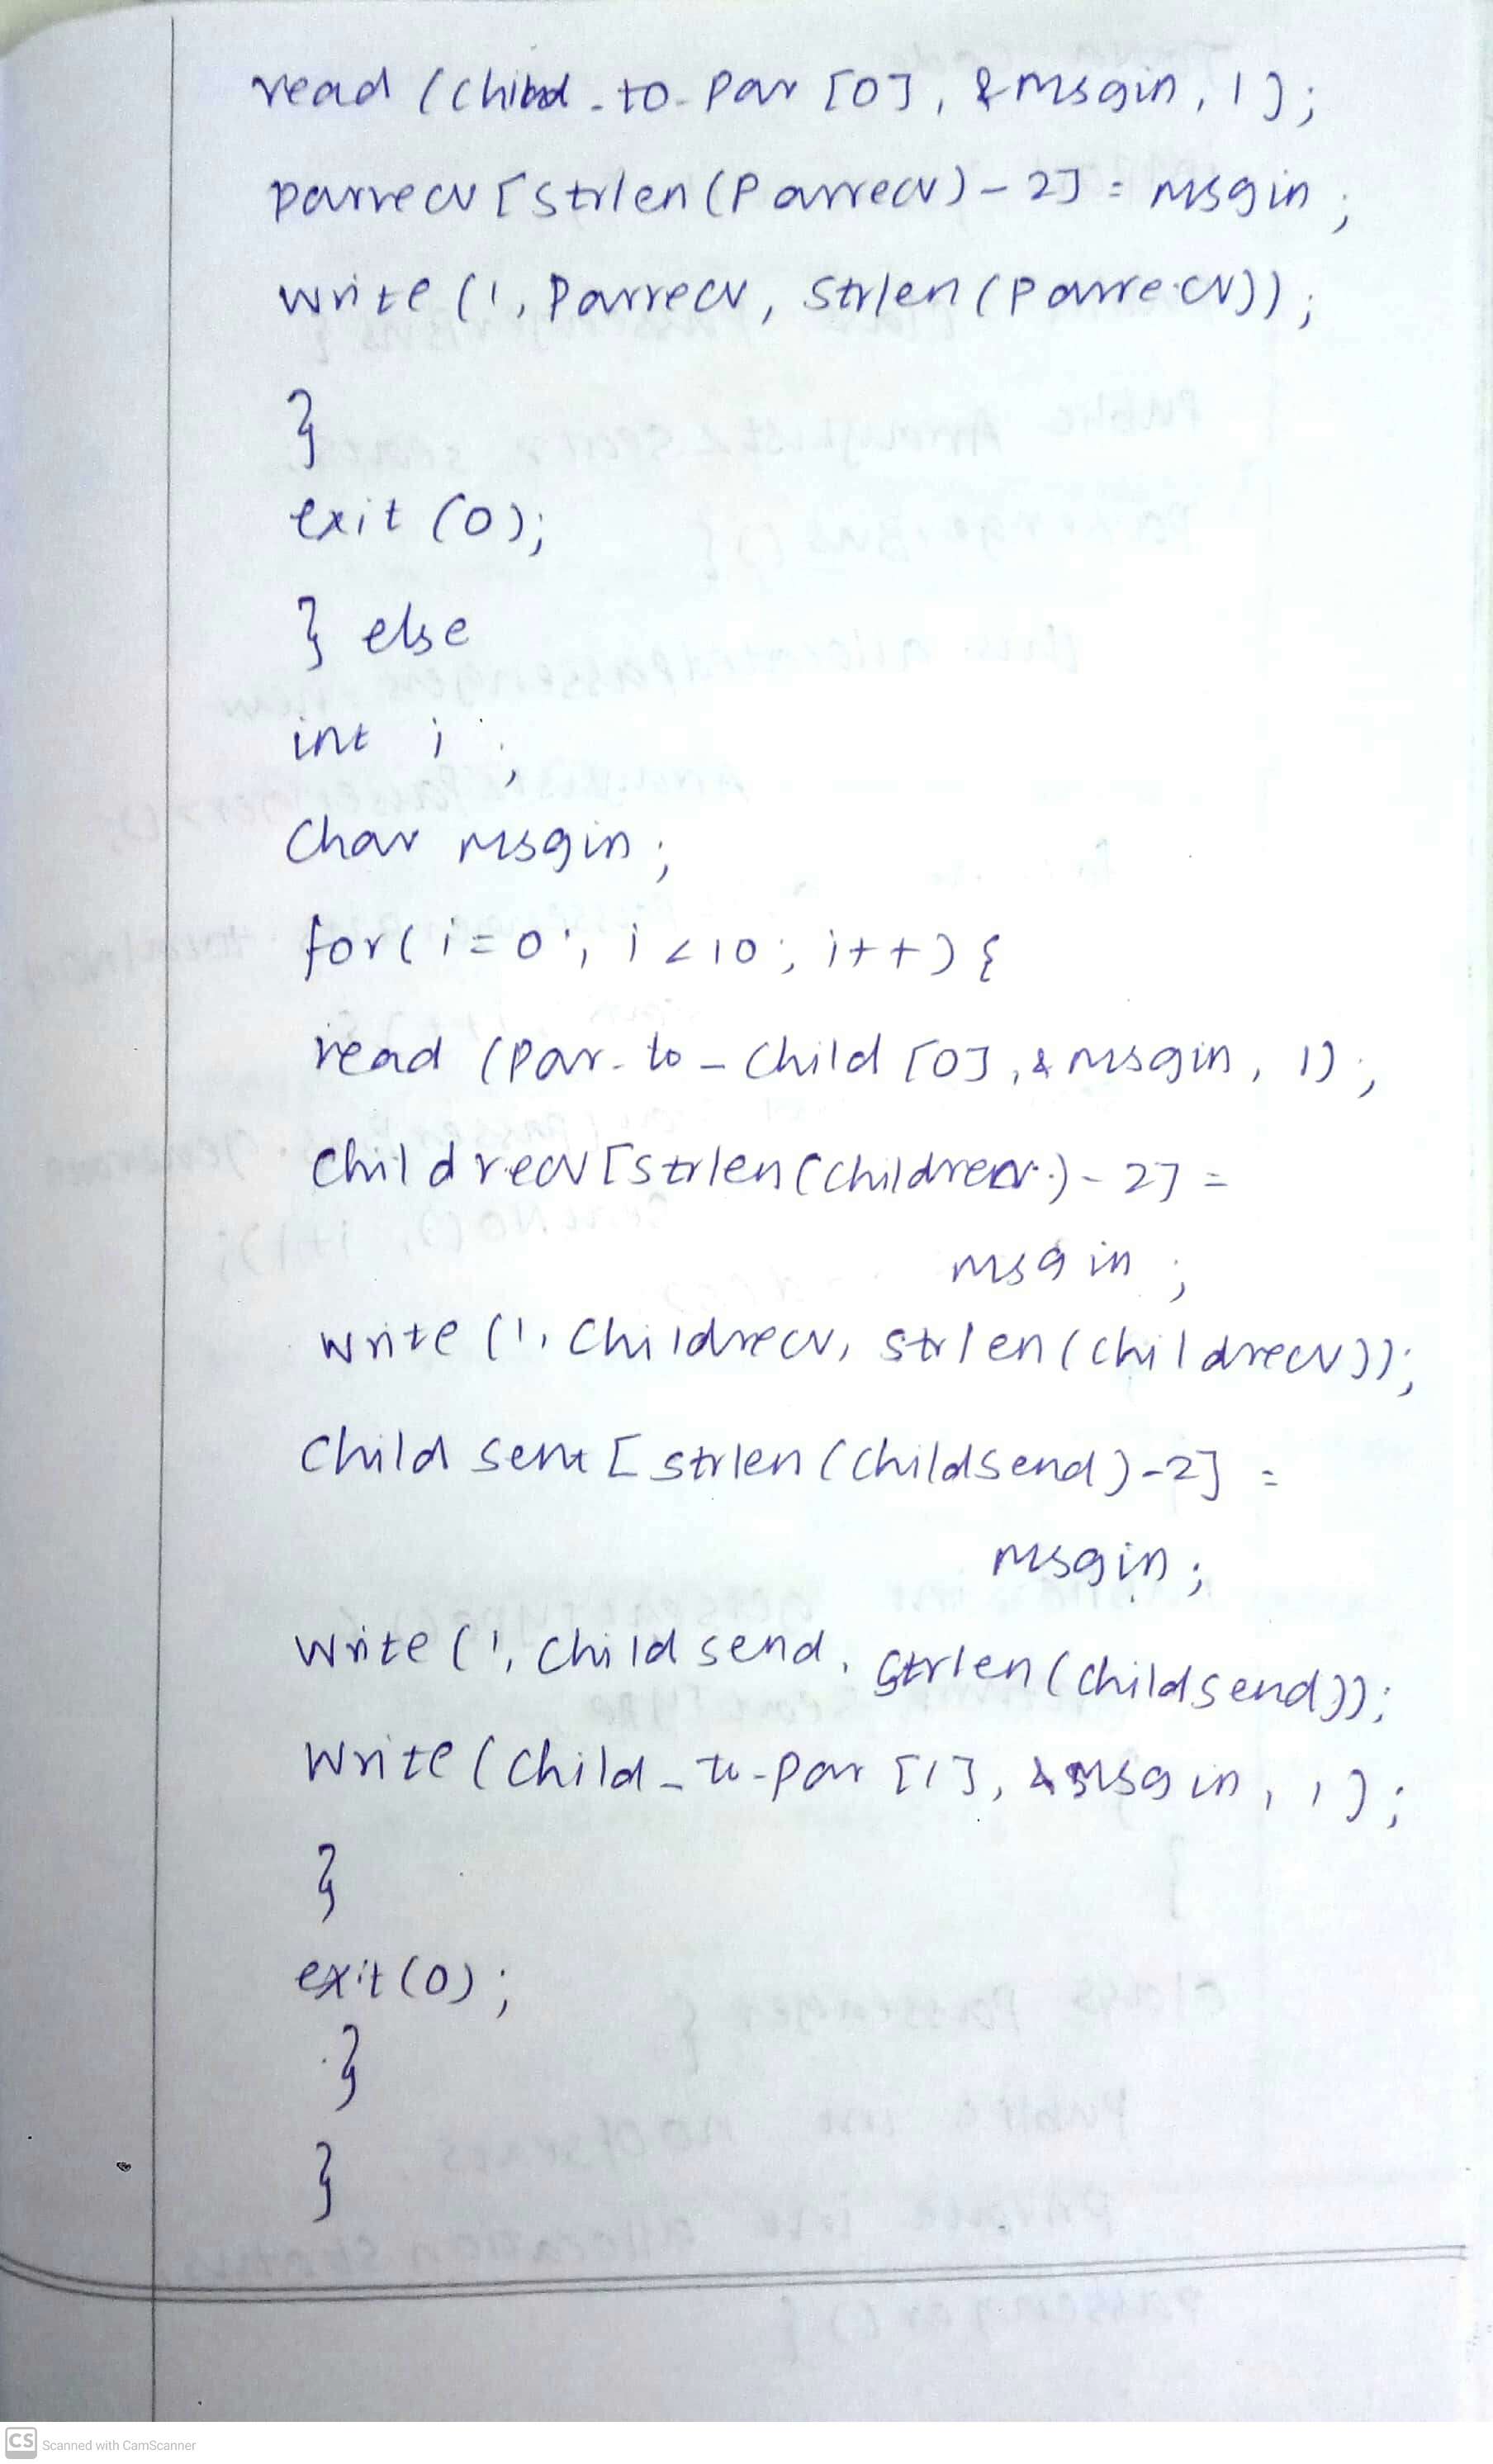 read (child_to_Par [0], &msgin, 1);
parrecv [strlen(Parrecv) - 2] = msgin;
write (1, Parrecv, strlen(Parrecv));
}
exit (0);
} else
int i ;
Char msgin ;
for( i = 0 ; i < 10 ; i++ ) {
read (Par_to_Child [0], & msgin, 1);
Childrecv [strlen(Childrecv) - 2] =
msgin ;
write (1, Childrecv, strlen(childrecv));
Child sent [strlen(Childsend) - 2] =
msgin ;
write (1, Child send, strlen(childsend));
Write (Child_to_Par [1], & msgin, 1);
}
exit(0) ;
}
}
CS Scanned with CamScanner